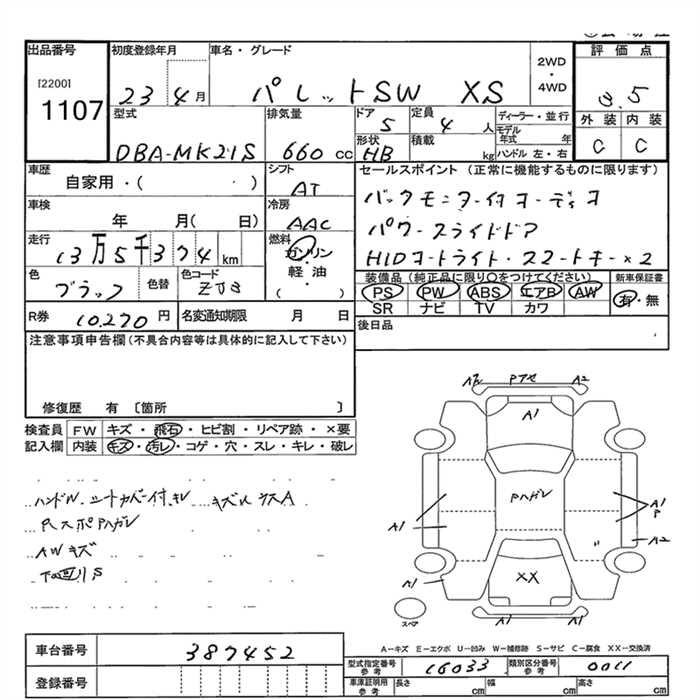 出品番号
[2200]
1107
初度登録年月
23年4月
車名・グレード
パレットSW XS
2WD
・
4WD
評価点
3.5
外装 内装
C C
型式
DBA-MK21S
排気量
660cc
ドア
5
定員
4人
形状
HB
積載
kg
ディーラー・並行
モデル年式 年
ハンドル 左・右
車歴
自家用・( )
シフト
AT
車検
年 月( 日)
冷房
AAC
走行
13万5千374km
燃料
ガソリン
軽・油
( )
色
ブラック
色替
色コード
ZJ3
R券
10,270円
名変通知期限 月 日
セールスポイント (正常に機能するものに限ります)
バックモニター付オーディオ
パワースライドドア
HIDオートライト・スマートキー×2
装備品(純正品に限り○をつけてください)
PS PW ABS エアB AW
SR ナビ TV カワ
新車保証書
有・無
後日品
注意事項申告欄(不具合内容等は具体的に記入して下さい)
修復歴 有 〔箇所 〕
検査員記入欄
FW キズ・飛石・ヒビ割・リペア跡・×要
内装 キズ・汚レ・コゲ・穴・スレ・キレ・破レ
ハンドル、シートカバー付、キレ キズルウスA
Rスポハガレ
AWキズ
下回りS
A2 Pアセ A2
A1
Pハガレ
A1
A1
P
A2
A1
〃
XX
A1 A1
スペア
A-キズ E-エクボ U-凹み W-補修跡 S-サビ C-腐食 XX-交換済
車台番号
387452
登録番号
型式指定番号 参考
16033
類別区分番号 参考
0011
車庫証明用 参考
長さ cm
幅 cm
高さ cm